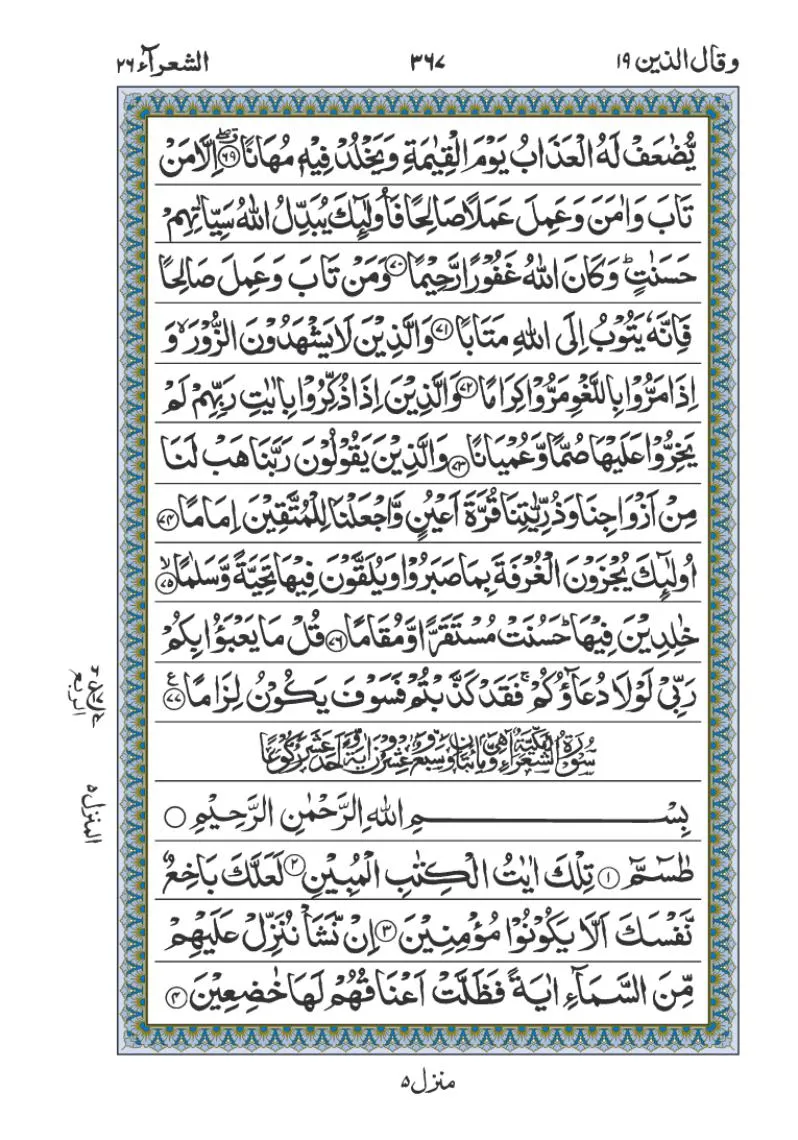 وقال الذین ۱۹
۳۶۷
الشعرآء ۲۶
یُّضٰعَفْ لَهُ الْعَذَابُ یَوْمَ الْقِیٰمَةِ وَیَخْلُدْ فِیْهٖ مُهَانًا ﴿۶۹﴾ اِلَّا مَنْ
تَابَ وَاٰمَنَ وَعَمِلَ عَمَلًا صَالِحًا فَاُولٰٓئِكَ یُبَدِّلُ اللّٰهُ سَیِّاٰتِهِمْ
حَسَنٰتٍ ؕ وَكَانَ اللّٰهُ غَفُوْرًا رَّحِیْمًا ﴿۷۰﴾ وَمَنْ تَابَ وَعَمِلَ صَالِحًا
فَاِنَّهٗ یَتُوْبُ اِلَى اللّٰهِ مَتَابًا ﴿۷۱﴾ وَالَّذِیْنَ لَا یَشْهَدُوْنَ الزُّوْرَ ۙ وَ
اِذَا مَرُّوْا بِاللَّغْوِ مَرُّوْا كِرَامًا ﴿۷۲﴾ وَالَّذِیْنَ اِذَا ذُكِّرُوْا بِاٰیٰتِ رَبِّهِمْ لَمْ
یَخِرُّوْا عَلَیْهَا صُمًّا وَّعُمْیَانًا ﴿۷۳﴾ وَالَّذِیْنَ یَقُوْلُوْنَ رَبَّنَا هَبْ لَنَا
مِنْ اَزْوَاجِنَا وَذُرِّیّٰتِنَا قُرَّةَ اَعْیُنٍ وَّاجْعَلْنَا لِلْمُتَّقِیْنَ اِمَامًا ﴿۷۴﴾
اُولٰٓئِكَ یُجْزَوْنَ الْغُرْفَةَ بِمَا صَبَرُوْا وَیُلَقَّوْنَ فِیْهَا تَحِیَّةً وَّسَلٰمًا ۙ﴿۷۵﴾
خٰلِدِیْنَ فِیْهَا ؕ حَسُنَتْ مُسْتَقَرًّا وَّمُقَامًا ﴿۷۶﴾ قُلْ مَا یَعْبَؤُا بِكُمْ
رَبِّیْ لَوْلَا دُعَآؤُكُمْ ۚ فَقَدْ كَذَّبْتُمْ فَسَوْفَ یَكُوْنُ لِزَامًا ﴿۷۷﴾
سُوْرَةُ الشُّعَرَآءِ مَكِّیَّةٌ وَّهِیَ مِائَتَانِ وَسَبْعٌ وَّعِشْرُوْنَ اٰیَةً وَّاَحَدَ عَشَرَ رُكُوْعًا
بِسْمِ اللّٰهِ الرَّحْمٰنِ الرَّحِیْمِ
طٰسٓمّٓ ﴿۱﴾ تِلْكَ اٰیٰتُ الْكِتٰبِ الْمُبِیْنِ ﴿۲﴾ لَعَلَّكَ بَاخِعٌ
نَّفْسَكَ اَلَّا یَكُوْنُوْا مُؤْمِنِیْنَ ﴿۳﴾ اِنْ نَّشَاْ نُنَزِّلْ عَلَیْهِمْ
مِّنَ السَّمَآءِ اٰیَةً فَظَلَّتْ اَعْنَاقُهُمْ لَهَا خٰضِعِیْنَ ﴿۴﴾
الربع
المنزل ۵
منزل ۵